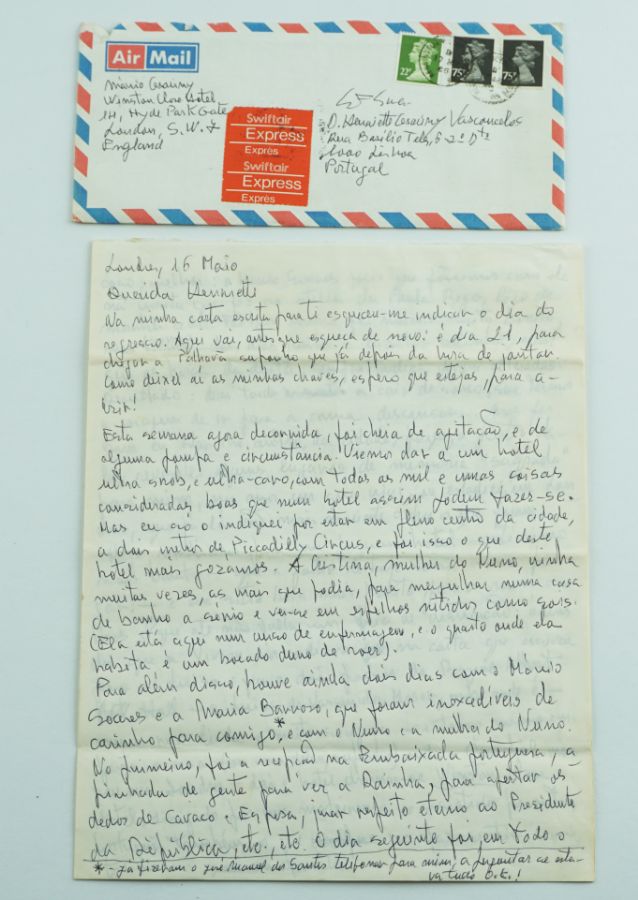 Air Mail
Mário Cesariny
Winston Close Hotel
14, Hyde Park Gate
London, S.W. 7
England
Swiftair
Express
Exprès
Swiftair
Express
Exprès
22P
75P
75P
D. Henriette Cesariny Vasconcelos
Rua Basílio Teles, 6 2º Dto
1000 Lisboa
Portugal
Londres, 16 Maio
Querida Henriette
Na minha carta escrita para te esqueceu-me indicar o dia do
regresso. Aqui vai, antes que esqueça de novo: é dia 21, para
chegar a Palhavã suponho que já depois da hora de jantar.
Como deixei aí as minhas chaves, espero que estejas, para a-
brir!
Esta semana agora decorrida, foi cheia de agitação, e de
alguma pompa e circunstância. Viemos dar a um hotel
ultra-snob, e ultra-caro, com todas as mil e umas coisas
consideradas boas que num hotel assim podem fazer-se.
Mas eu só o indiquei por estar em pleno centro da cidade,
a dois metros de Piccadilly Circus, e foi isso o que deste
hotel mais gozamos. A Cristina, mulher do Nuno, vinha
muitas vezes, as mais que podia, para mergulhar numa casa
de banho a sério e ver-se em espelhos nítidos como sóis.
(Ela está aqui num curso de enfermagem, e o quarto onde ela
habita é um bocado duro de roer).
Para além disso, houve ainda dois dias com o Mário
Soares e a Maria Barroso, que foram inexcedíveis de
carinho para comigo,* e com o Nuno e a mulher do Nuno.
No primeiro, foi a recepção na Embaixada portuguesa, a
pinhada de gente para ver a Rainha, para apertar os
dedos de Cavaco e Esposa, jurar respeito eterno ao Presidente
da República, etc., etc. O dia seguinte foi, em todo o
* - já fizeram o José Manuel dos Santos telefonar para mim, a perguntar se esta-
va tudo O.K.!